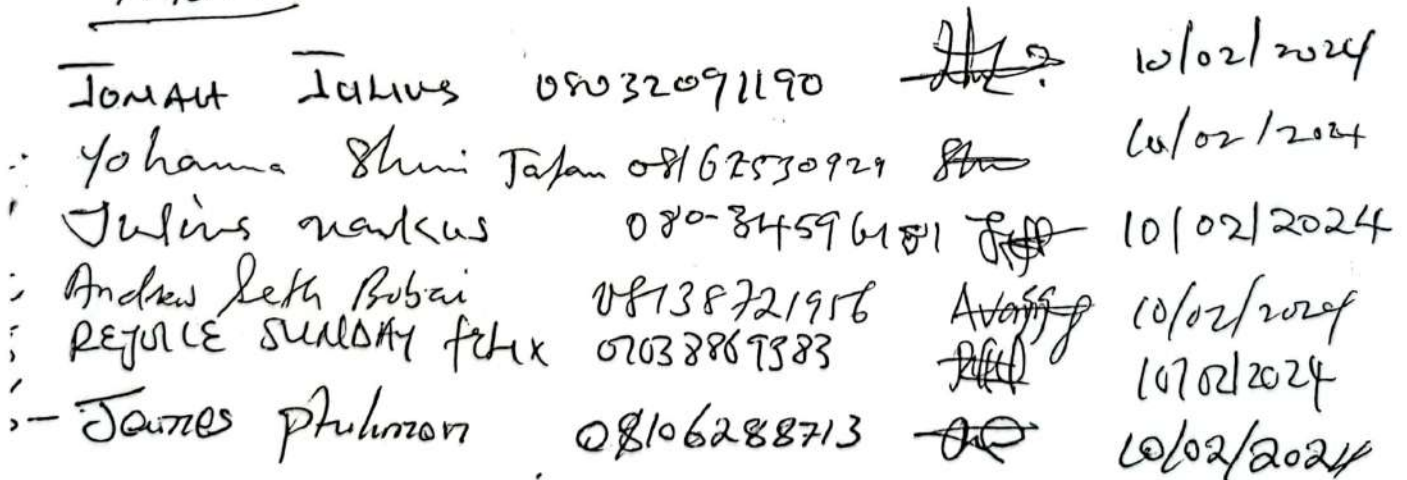 JONAH JULIUS 08032091190 10/02/2024
Yohanna Shuni Tafan 08162530929 10/02/2024
Julius markus 080-34596181 10/02/2024
Andrew Seth Bobai 08138721956 10/02/2024
REJOICE SUNDAY felix 07038869383 10/02/2024
James philimon 08106288713 10/02/2024